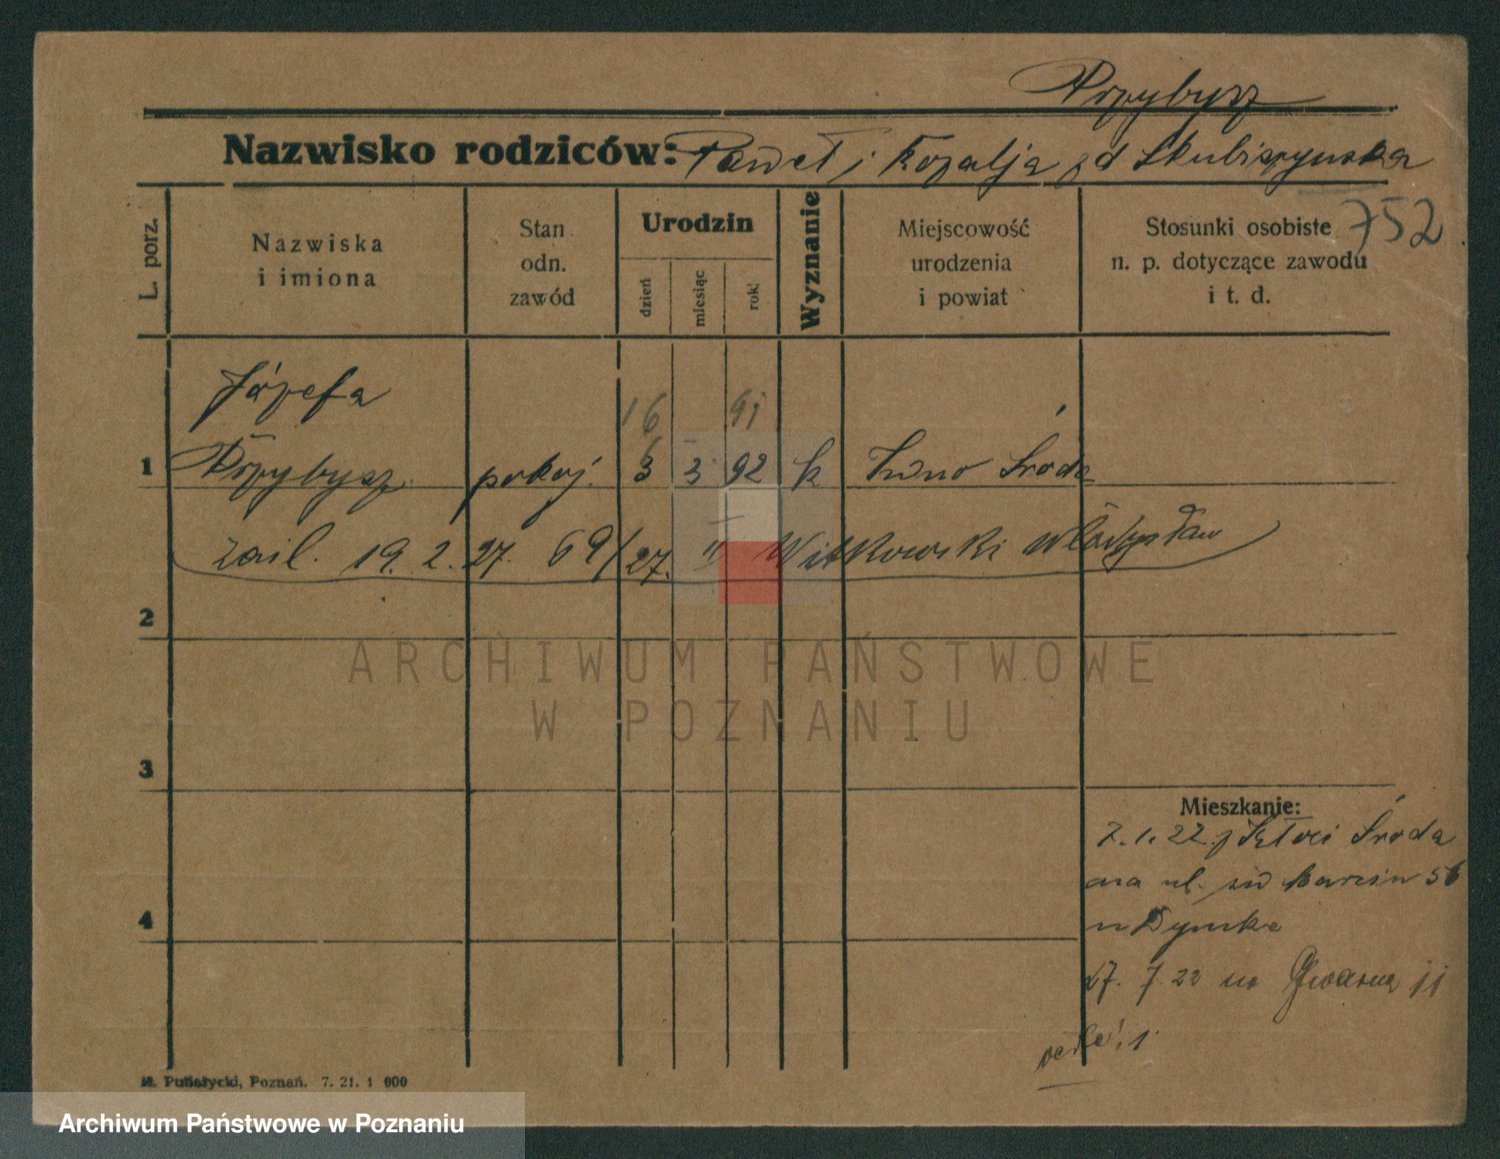 Przybysz
Nazwisko rodziców: Paweł i Rozalja zd Skubiszyńska
L. porz.
Nazwiska
i imiona
Stan
odn.
zawód
Urodzin
dzień
miesiąc
rok
Wyznanie
Miejscowość
urodzenia
i powiat
Stosunki osobiste
n. p. dotyczące zawodu
i t. d.
752
Józefa
16 91
1 Przybysz pokoj. 3 3 92 k Środa
19. 2. 27. 69/27. II Witkowski Władysław
2
3
4
Mieszkanie:
7.1.22 z Środa
na ul. św Marcin 56
27. 7. 22 na Gwarna 11
M. Putiatycki, Poznań. 7. 21. 1 000
ARCHIWUM PAŃSTWOWE
W POZNANIU
Archiwum Państwowe w Poznaniu